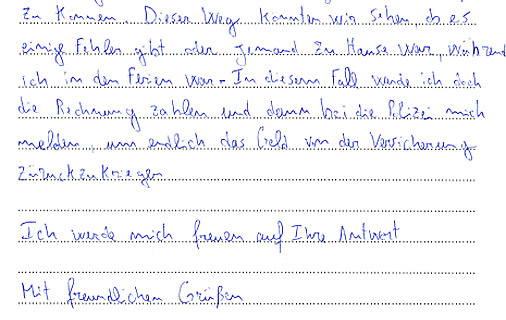 zu können. Dieser Weg könnten wir sehen, ob es
einige Fehler gibt oder jemand zu Hause war, während
ich in den Ferien war. In diesem Fall werde ich doch
die Rechnung zahlen und dann bei die Polizei mich
melden, um endlich das Geld von der Versicherung
zürückzukriegen
Ich werde mich freuen auf Ihre Antwort
Mit freundlichen Grüßen